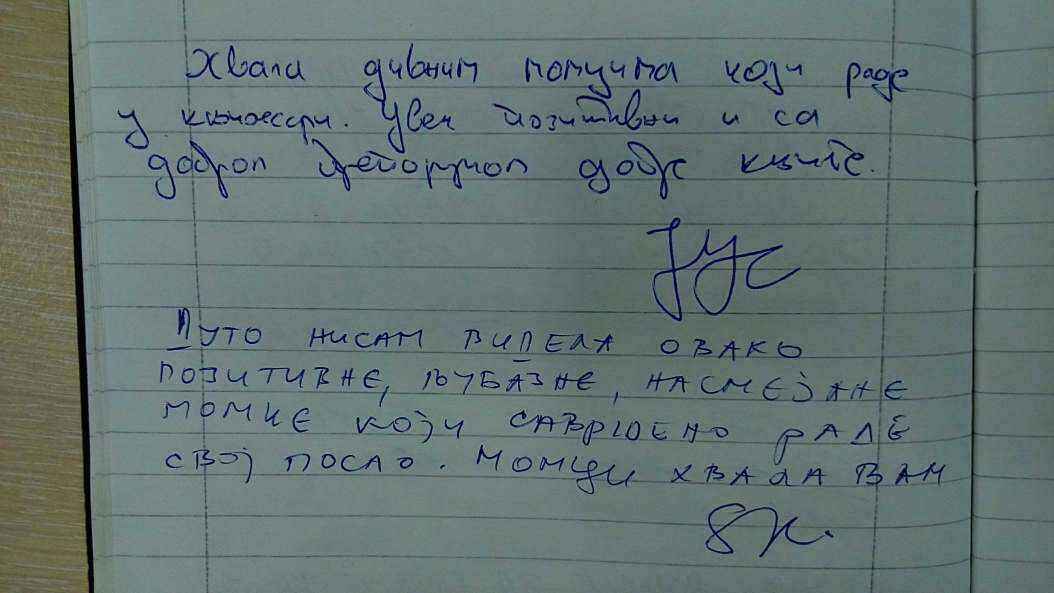 Хвала дивним момцима који раде
у књижари. Увек позитивни и са
добром препоруком добре књиге.
Дуго нисам видела овако
позитивне, љубазне, насмејане
момке који савршено раде
свој посао. Момци хвала вам